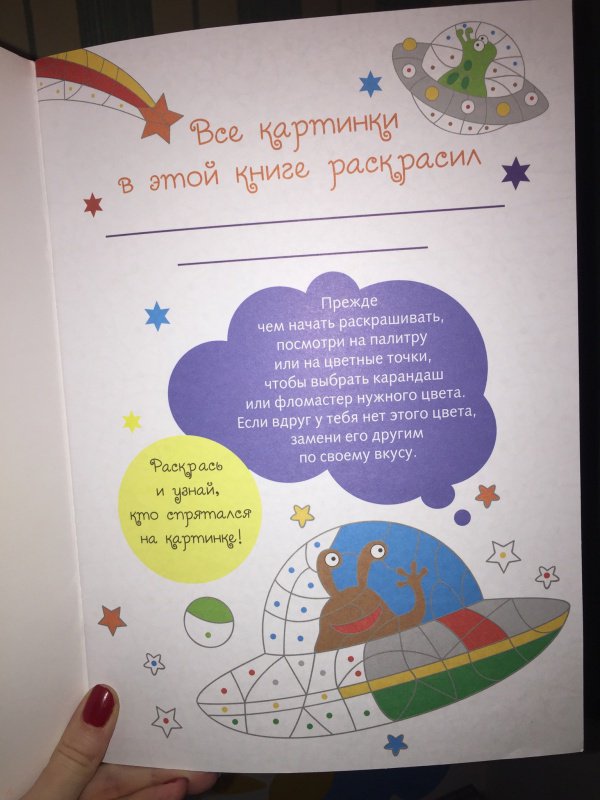 Все картинки
в этой книге раскрасил
Прежде
чем начать раскрашивать,
посмотри на палитру
или на цветные точки,
чтобы выбрать карандаш
или фломастер нужного цвета.
Если вдруг у тебя нет этого цвета,
замени его другим
по своему вкусу.
Раскрась
и узнай,
кто спрятался
на картинке!